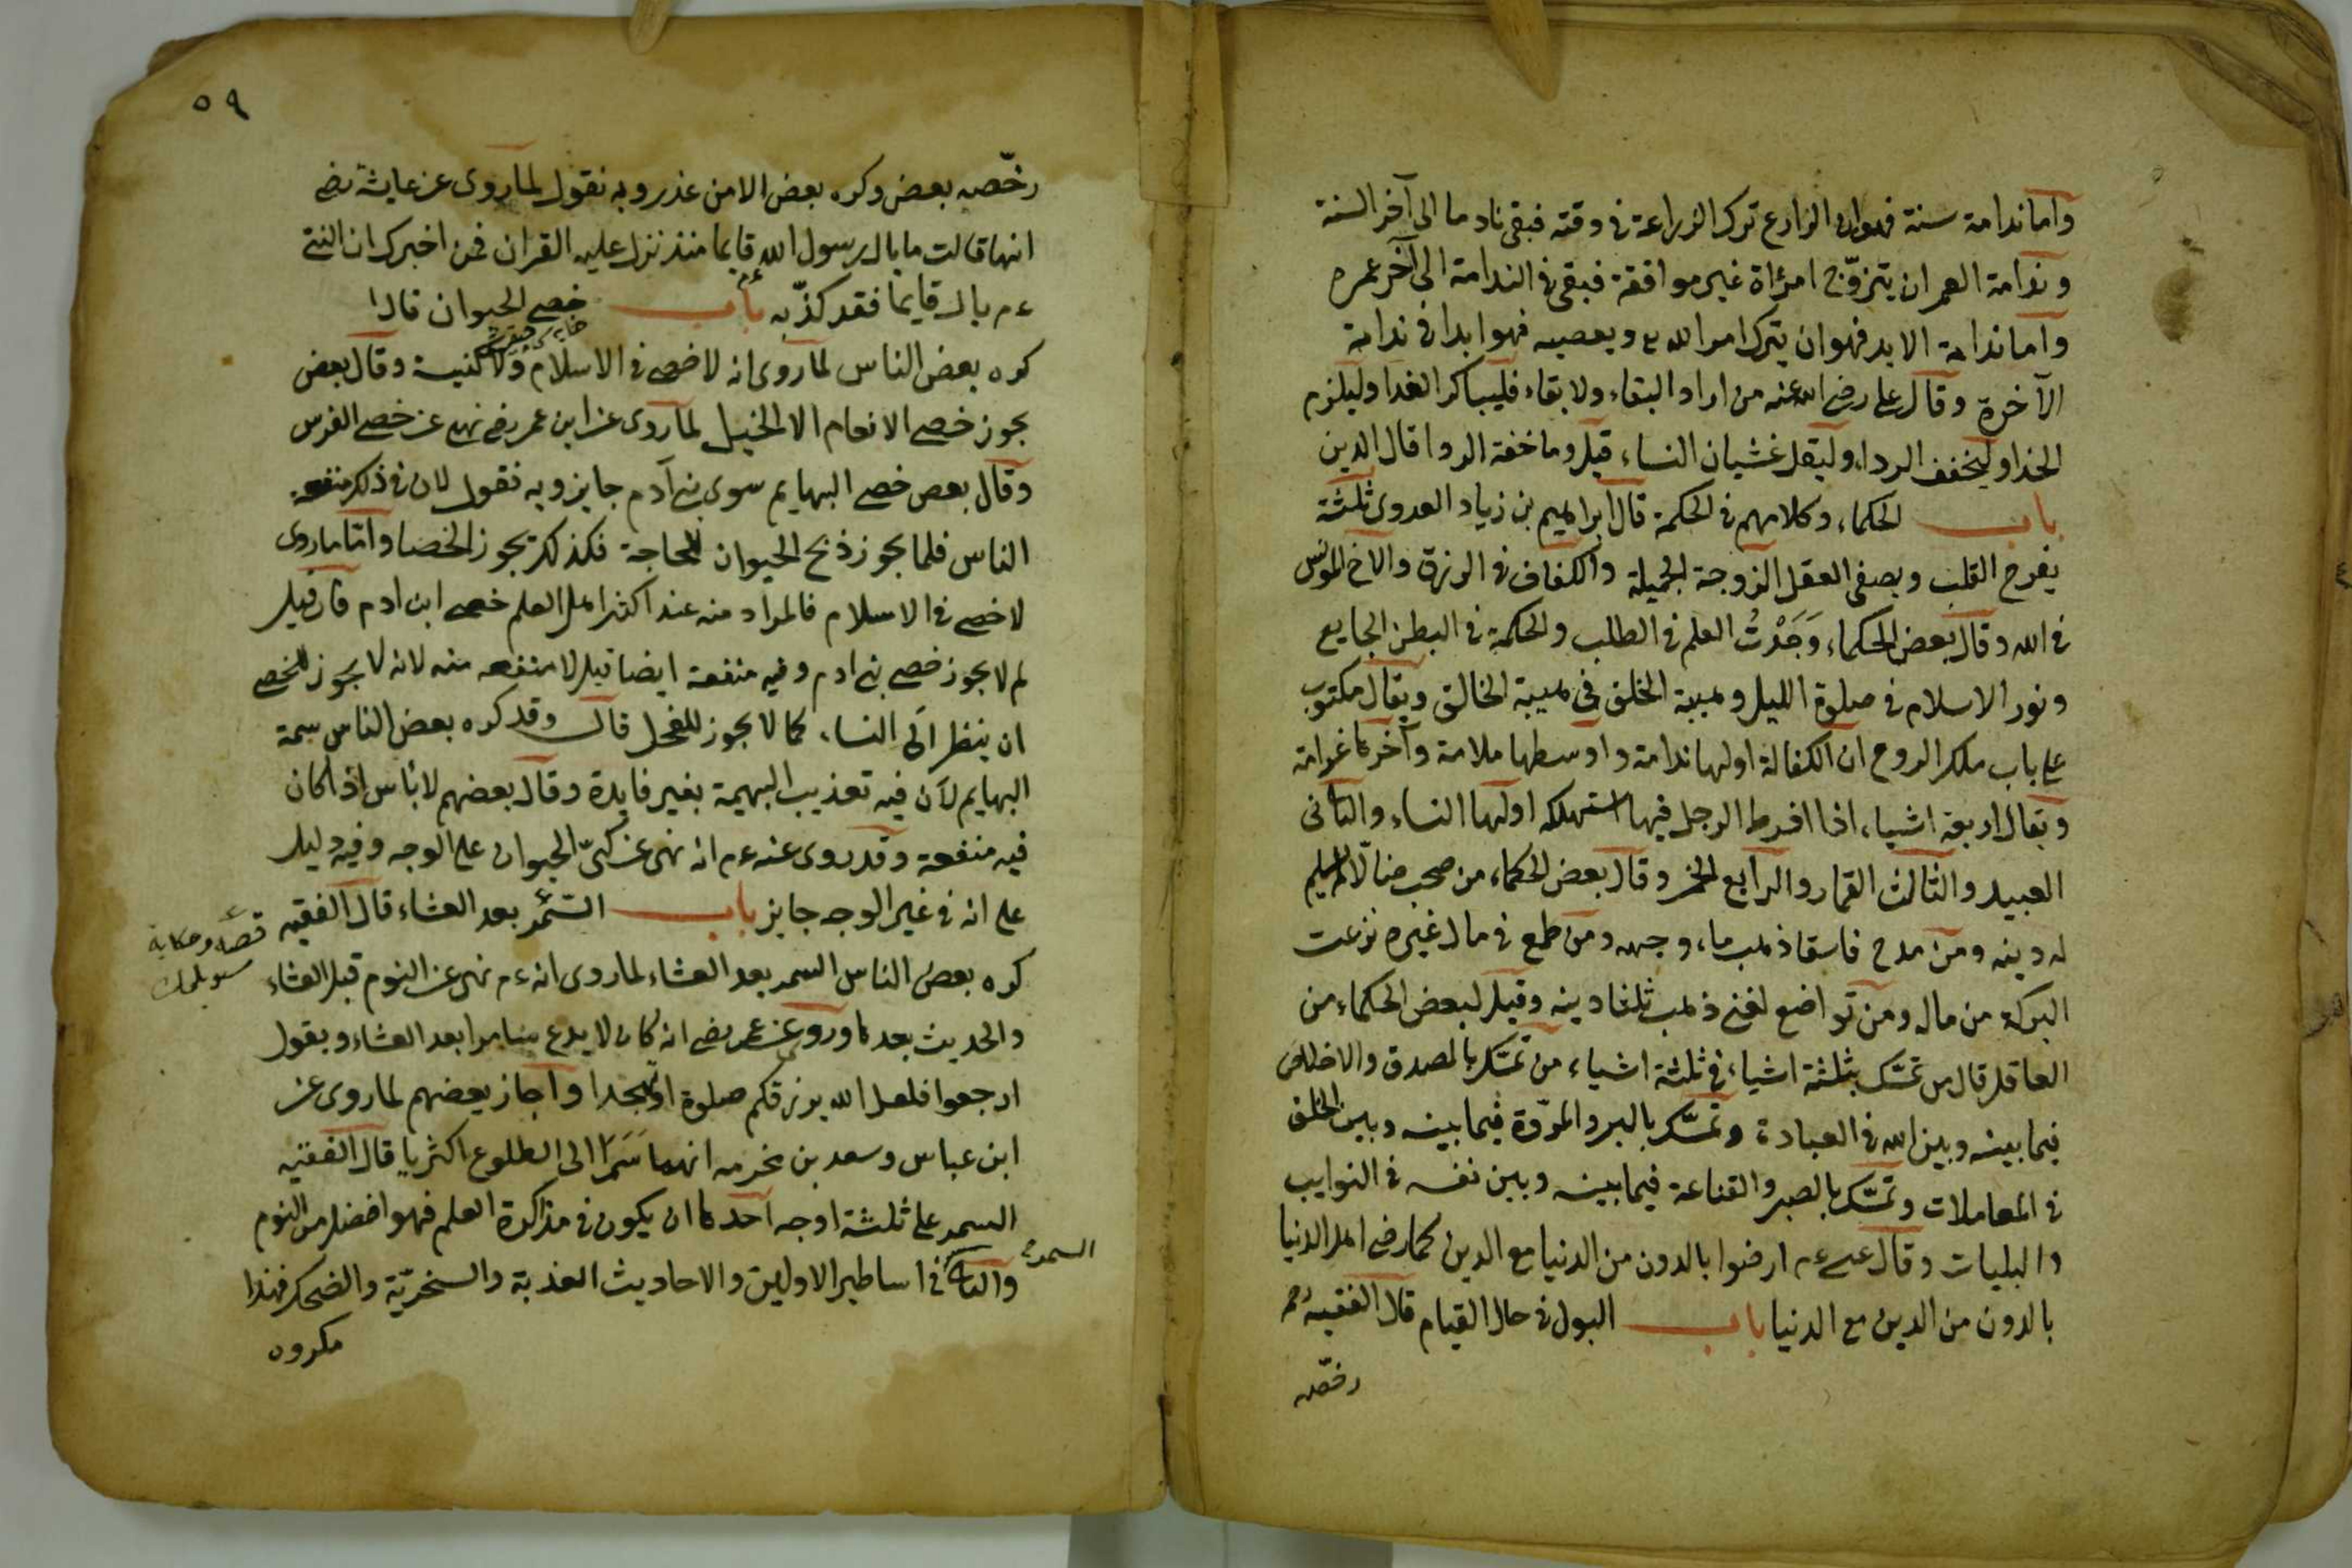 واما ندامة سنة فهوان الزارع ترك الزراعة فى وقته فبقى نادما الى آخر السنة
وندامة العمر ان يتزوّج امرٔاة غير موافقة فبقى فى الندامة الى آخر عمره
واما ندامة الابد فهو ان يترك امر الله تع ويعصيه فهو ابدا فى ندامة
الآخرة وقال على رضى الله عنه من اراد البقاء ولا بقاء فليباكر الغدا وليلزم
الحذا وليخفف الرداء وليقل غشيان النساء قيل وما خفة الردا قال الدين
باب الحكماء وكلامهم فى الحكمة قال ابراهيم بن زياد العدوى ثلثة
يفرح القلب ويصفى العقل الزوجة الجميلة والكفاف فى الرزق والاخ المونس
فى الله وقال بعض الحكماء وَجَدْتُ العلم فى الطلب والحكمة فى البطن الجايع
ونور الاسلام فى صلوة الليل وهيبة الخلق فى هيبة الخالق ويقال مكتوب
على باب ملك الروح ان الكفالة اولها ندامة واوسطها ملامة وآخرها غرامة
ويقال اربعة اشياء اذا افرط الرجل فيها استهلكه اولها النساء والثانى
العبيد والثالث القمار والرابع الخمر وقال بعض الحكماء من صحب ضالّا لم يسلم
له دينه ومن مدح فاسقا ذهب ماء وجهه ومن طمع فى مال غيره نزعت
البركة من ماله ومن تواضع لغنى ذهب ثلثا دينه وقيل لبعض الحكماء من
العاقل قال من تمسّك بثلثة اشياء فى ثلثة اشياء من تمسّك بالصدق والاخلاص
فيما بينه وبين الله فى العبادة وتمسّك بالبر والمروّة فيما بينه وبين الخلق
فى المعاملات وتمسّك بالصبر والقناعة فيما بينه وبين نفسه فى النوايب
والبليات وقال عيسى عم ارضوا بالدون من الدنيا مع الدين كما رضى اهل الدنيا
بالدون من الدين مع الدنيا باب البول فى حال القيام قال الفقيه رحم
رخّصه
٥٩
رخّصه بعض وكره بعض الا من عذر وبه نقول لما روى عن عايشة رضى
انها قالت ما بال رسول الله قايما منذ نزل عليه القران فمن اخبرك ان النبى
عم بال قايما فقد كذّبه باب خصى الحيوان قال
كره بعض الناس لما روى انه لا خصى فى الاسلام ولا كنيسة وقال بعض
يجوز خصى الانعام الا الخيل لما روى عن ابن عمر رضى نهى عن خصى الفرس
وقال بعض خصى البهايم سوى بنى آدم جايز وبه نقول لان فى ذلك منفعة
الناس فلما يجوز ذبح الحيوان للحاجة فكذلك يجوز الخصا واما ما روى
لا خصى فى الاسلام فالمراد منه عند اكثر اهل العلم خصى ابن ادم فان قيل
لم لا يجوز خصى بنى ادم وفيه منفعة ايضا قيل لا منفعه منه لانه لا يجوز للخصى
ان ينظر الى النساء كما لا يجوز للفحل قال وقد كره بعض الناس سمة
البهايم لان فيه تعذيب البهيمة بغير فايدة وقال بعضهم لا باس اذا كان
فيه منفعة وقد روى عنه عم انه نهى عن كىّ الحيوان على الوجه وفيه دليل
على انه فى غير الوجه جايز باب السّمر بعد العشاء قال الفقيه
قصّه وحكاية
سويلمك
كره بعض الناس السمر بعد العشاء لما روى انه عم نهى عن النوم قبل العشاء
والحديث بعدها وروى عن عمر رضى انه كان لا يدع سامرا بعد العشاء ويقول
ارجعوا فلعل الله يرزقكم صلوة او تهجدا واجاز بعضهم لما روى عن
ابن عباس وسعد بن مخرمه انهما سَمَرَا الى الطلوع اكثريا قال الفقيه
السمر على ثلثة اوجه احدها ان يكون فى مذاكرة العلم فهو افضل من النوم
السمر
والثانى فى اساطير الاولين والاحاديث الكذبة والسخريّة والضحك فهذا
مكروه